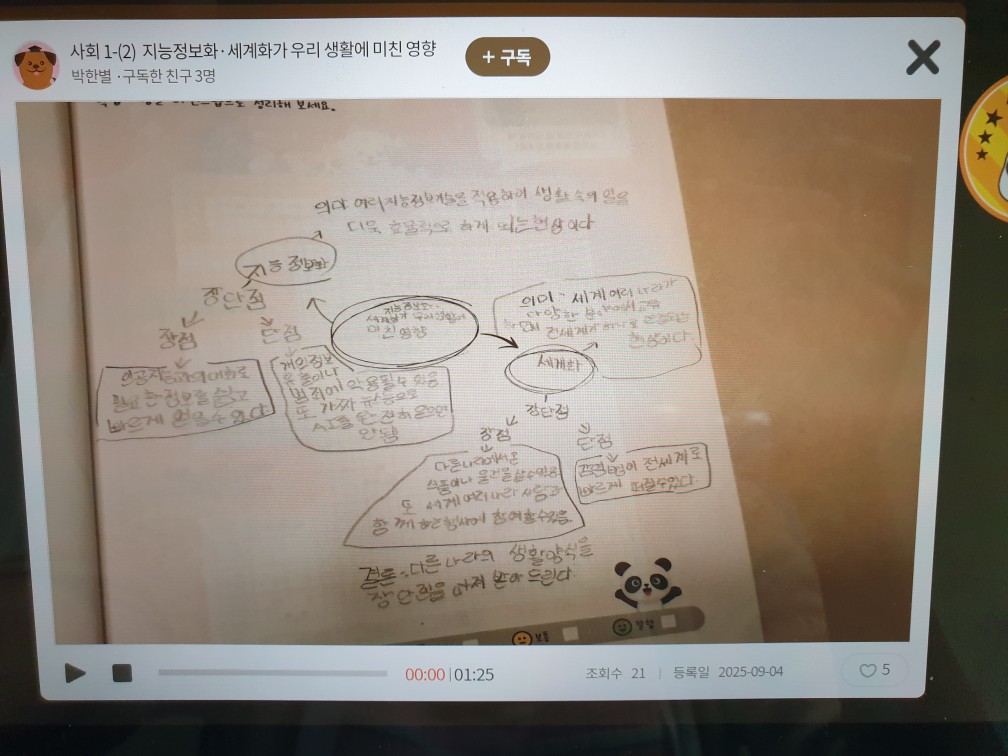 사회 1-(2) 지능정보화·세계화가 우리 생활에 미친 영향
+ 구독
박한별 ·구독한 친구 3명
정리해 보세요.
의미 여러지능정보기술을 적용하여 생활 속의 일을
더욱 효율적으로 하게 되는현상이다
지능 정보화
장단점
장점
단점
인공지능과의 대화로
필요 한정보를 쉽고
빠르게 얻을수 있다
개인정보
유출이나
범죄에 악용될수 있음
또 가짜 뉴스등으로
AI를 완전히 믿으면
안됨
지능정보화·
세계화가 우리 생활에
미친 영향
의미 : 세계 여러 나라가
다양한 분야에서 교류
전세계가 하나로 연결되는
현상이다.
세계화
장단점
장점
단점
다른나라에서온
식품이나 물건을 살수있음
또 세계 여러 나라 사람과
함께 하는행사에 참여할수있음.
감염병이 전세계로
빠르게 퍼질수있다.
결론 : 다른 나라의 생활양식을
장단점을 받아 드린다.
보통
잘함
00:00 | 01:25
조회수 21 | 등록일 2025-09-04
5